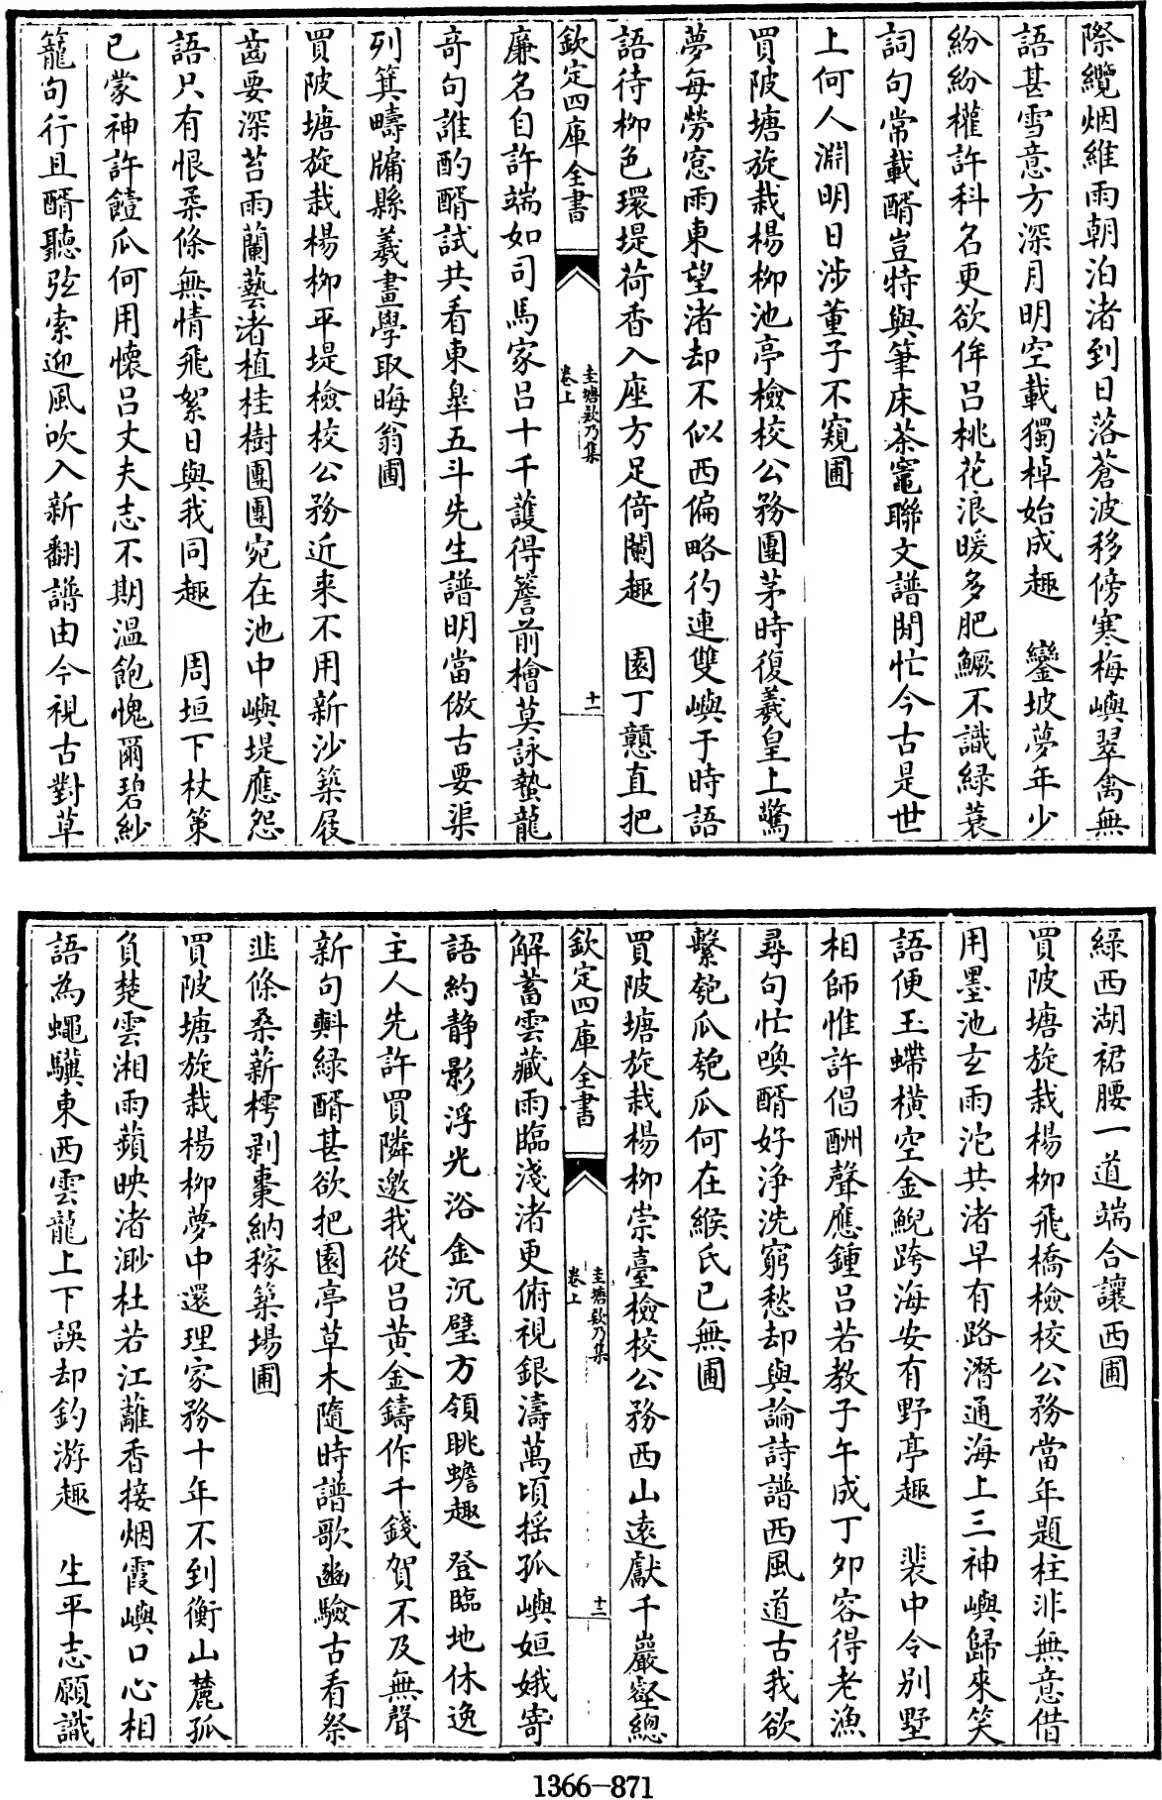 際纜烟維雨朝泊渚到日落蒼波移傍寒梅嶼翠禽無
語甚雪意方深月明空載獨棹始成趣　鑾坡夢年少
紛紛權許科名更欲侔吕桃花浪暖多肥鱖不識緑蓑
詞句常載酧豈特與筆床茶竈聯文譜閒忙今古是世
上何人淵明日涉董子不窺圃
買陂塘旋栽楊柳池亭檢校公務團茅時復羲皇上驚
夢每勞窓雨東望渚却不似西偏略彴連雙嶼于時語
語待柳色環堤荷香入座方足倚闌趣　園丁戇直把
欽定四庫全書
圭塘欸乃集
卷上
十一
廉名自許端如司馬家吕十千護得簷前檜莫詠蟄龍
竒句誰酌酧試共看東臯五斗先生譜明當倣古要渠
列箕疇牖縣羲畫學取晦翁圃
買陂塘旋栽楊柳平堤檢校公務近来不用新沙築屐
齒要深苔雨蘭藝渚植桂樹團團宛在池中嶼堤應怨
語只有恨柔條無情飛絮日與我同趣　周垣下杖策
已蒙神許饐瓜何用懷吕丈夫志不期温飽愧爾碧紗
籠句行且酧聽弦索迎風吹入新翻譜由今視古對草
緑西湖裙腰一道端合讓西圃
買陂塘旋栽楊柳飛橋檢校公務當年題柱非無意借
用墨池玄雨沱共渚早有路潛通海上三神嶼歸來笑
語便玉蝀横空金鯢跨海安有野亭趣　裴中令别墅
相師惟許倡酬聲應鍾吕若教子午成丁夘容得老漁
尋句忙喚酧好浄洗窮愁却與論詩譜西風道古我欲
繫匏瓜匏瓜何在緱氏已無圃
買陂塘旋栽楊柳崇臺檢校公務西山逺獻千巖壑總
欽定四庫全書
圭塘欸乃集
卷上
十二
解蓄雲藏雨臨淺渚更俯視銀濤萬頃揺孤嶼姮娥寄
語約静影浮光浴金沉璧方領眺蟾趣　登臨地休逸
主人先許買隣邀我從吕黄金鑄作千錢賀不及無聲
新句㪺緑酧甚欲把園亭草木隨時譜歌豳驗古看祭
韭條桑薪樗剥棗納稼築場圃
買陂塘旋栽楊柳夢中還理家務十年不到衡山麓孤
負楚雲湘雨蘋映渚渺杜若江蘺香接烟霞嶼口心相
語為蠅驥東西雲龍上下誤却釣游趣　生平志願識
1366-871